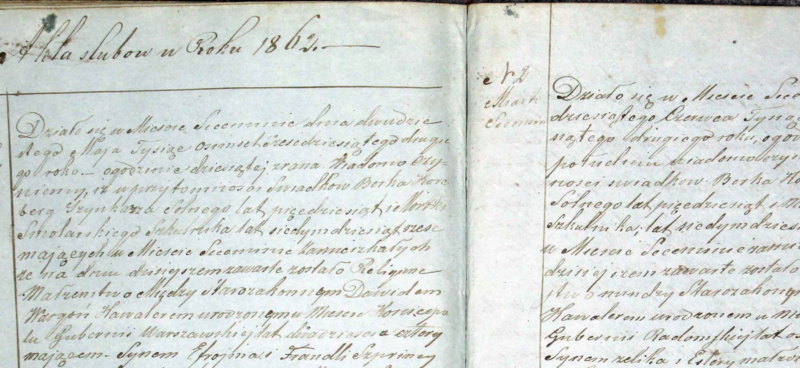 Akta slubow w Roku 1862.
Działo się w Miescie Seceminie dnia dwudzie
stego Maja Tysiąc osmset szescdziesiątego drugie
go roku o godzinie dziesiątej zrana Wiadomo Czy
niemy, iż w przytomnosci Swiadkow Berka
berg Szynkarza Solnego lat pięcdziesiąt i
Smolarskiego Szkolnika lat siedymdziesiąt
mających w Miescie Seceminie zamieszkałych
że na dniu dzisieyszem zawarte zostało Religijne
Małzenstwo Między Starozakonnym Dawidem
Kawalerem urodzonym w Miescie
lu Gubernii Warszawskiej lat dwadziescia cztery
mającem Synem Efroima i Frandli
N 2
Miasto
Secemin
Działo się w Miescie Sece
dziesiątego Czerwca Tysiąc
siątego drugiego roku, o godz
południu wiadomo czyn
nosci swiadkow Berka
Solnego lat pięcdziesiąt i
Szkolnika, lat siedymdziesi
w Miescie Seceminie zamie
dzisiejszem zawarte zostało
stwo między Starozakonnym
Kawalerem urodzonem w
Gubernii Radomskiej lat
Synem Zelika i Estery małż